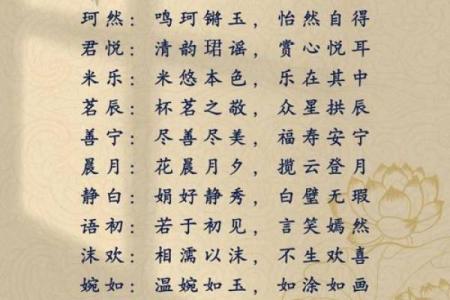 珂然：鸣珂锵玉，怡然自得
君悦：清韵珺谣，赏心悦耳
米乐：米悠本色，乐在其中
茗辰：杯茗之敬，众星拱辰
善宁：尽善尽美，福寿安宁
晨月：花晨月夕，揽云登月
静白：娟好静秀，白璧无瑕
语初：若于初见，言笑嫣然
沫欢：相濡以沫，不生欢喜
婉如：温婉如玉，如涂如画